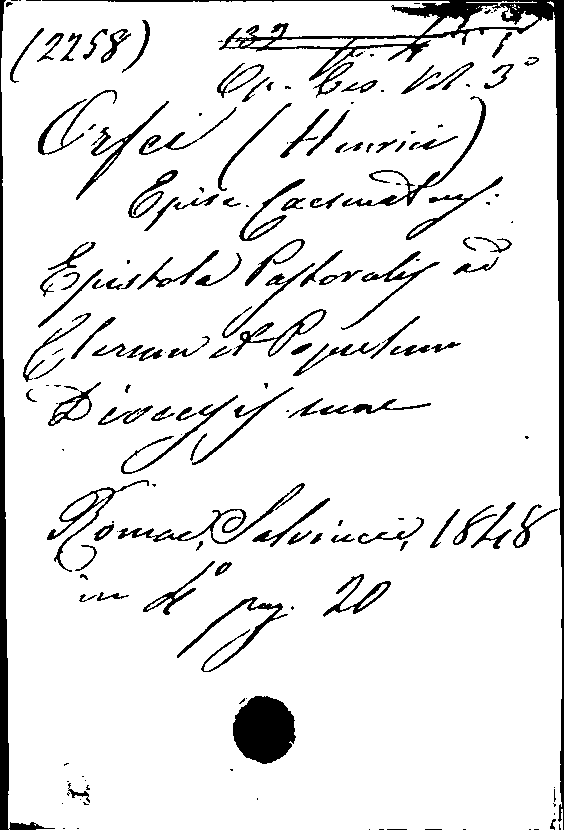 (2258) 132
Op. Ces. Vol. 3°
Orfei (Henrici)
Episc. Caesenatens.
Epistola Pastoralis ad
Clerum et Populum
Dioecesis suae
Romae, Salviucci, 1848
in 4° pag. 20